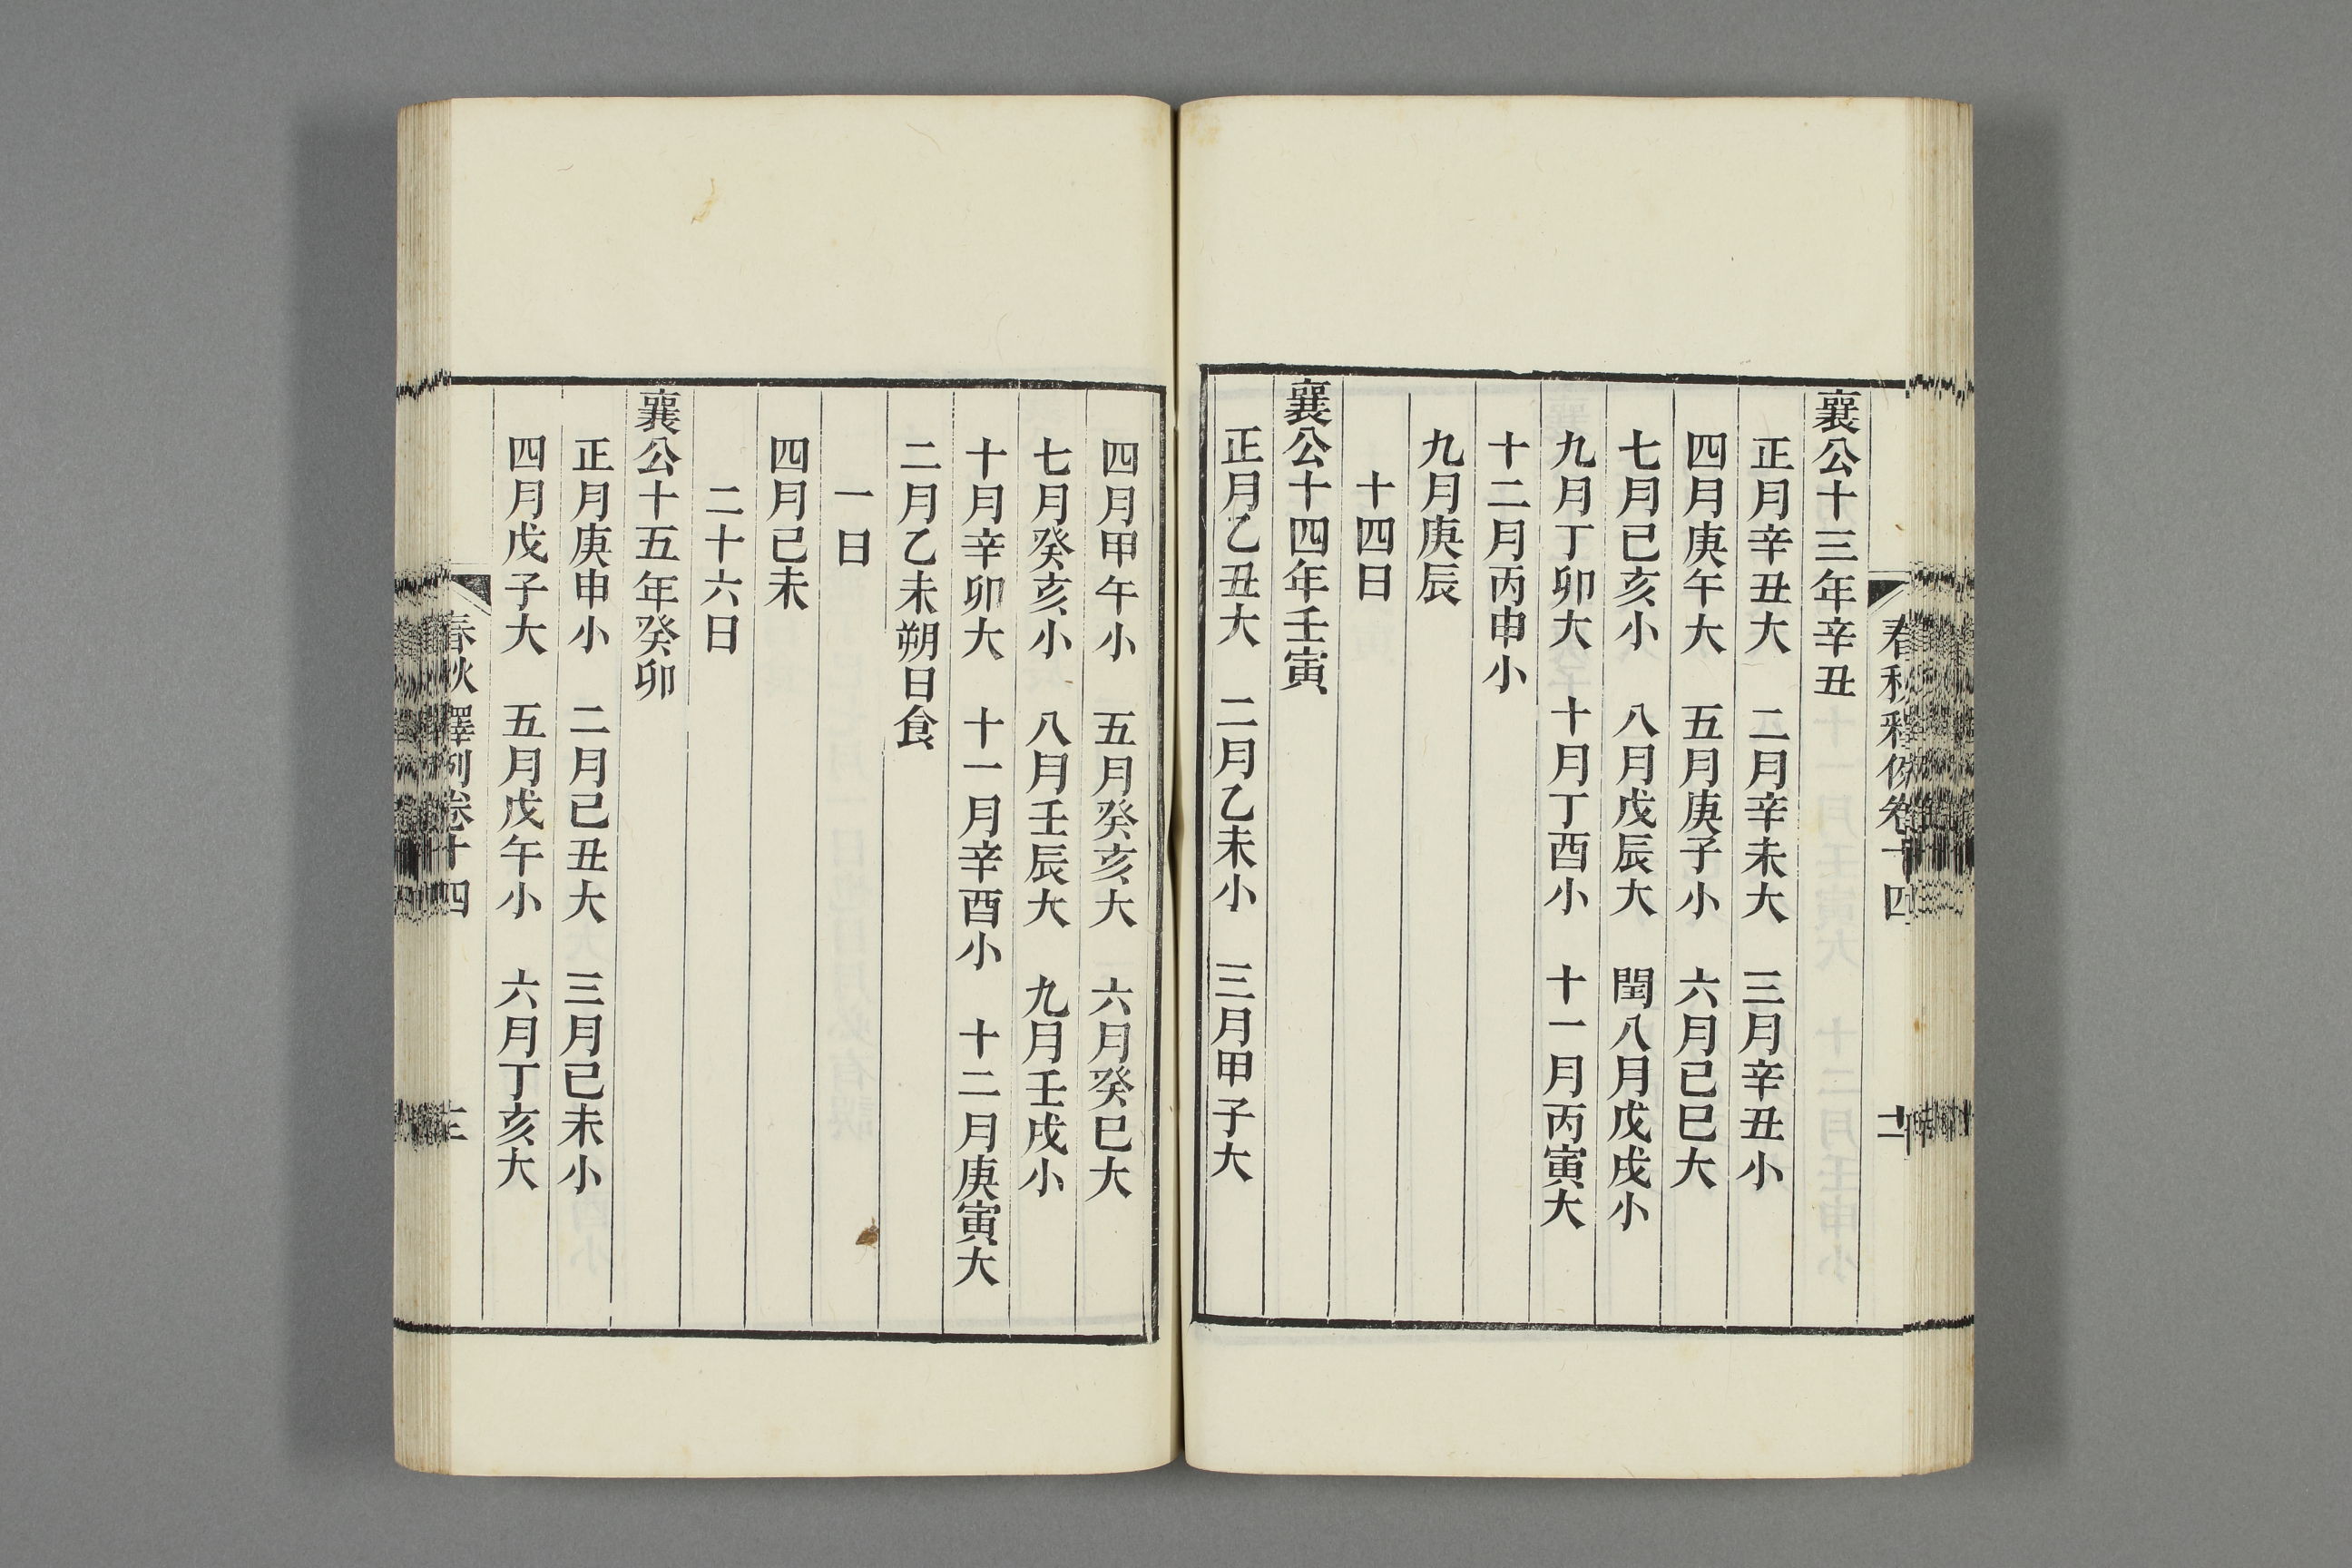 春秋釋例卷十四
襄公十三年辛丑
正月辛丑大　二月辛未大　三月辛丑小
四月庚午大　五月庚子小　六月己巳大
七月己亥小　八月戊辰大　閏八月戊戌小
九月丁卯大　十月丁酉小　十一月丙寅大
十二月丙申小
九月庚辰
十四日
襄公十四年壬寅
正月乙丑大　二月乙未小　三月甲子大
四月甲午小　五月癸亥大　六月癸巳大
七月癸亥小　八月壬辰大　九月壬戌小
十月辛卯大　十一月辛酉小　十二月庚寅大
二月乙未朔日食
一日
四月己未
二十六日
襄公十五年癸卯
正月庚申小　二月己丑大　三月己未小
四月戊子大　五月戊午小　六月丁亥大
春秋釋例卷十四